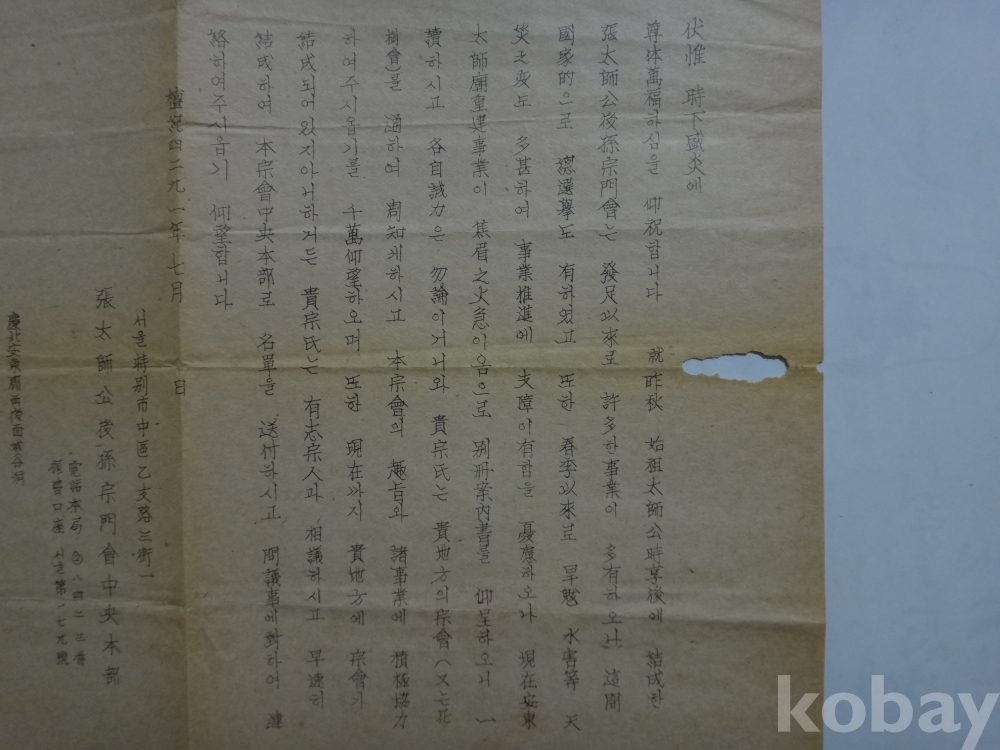 伏惟 時下盛炎에
尊体萬福하심을 仰祝합니다 就 昨秋 始祖太師公時享後에 結成한
張太師公後孫宗門會는 發足以來로 許多한事業이 多有하오나 這間
國家的으로 總選擧도 有하였고 또한 春季以來로 旱魃 水害等 天
災之変도 多甚하여 事業推進에 支障이有함을 憂慮하오나 現在安東
太師廟重建事業이 焦眉之火急이옴으로 別冊案內書를 仰呈하오니 一
讀하시고 各自誠力은 勿論이거니와 貴宗氏는 貴地方의宗會(又는花
樹會)를 通하여 周知케하시고 本宗會의 趣旨와 諸事業에 積極協力
하여주시옵기를 千萬仰望하오며 또한 現在까지 貴地方에 宗會가
結成되어있지아니하거든 貴宗氏는 有志宗人과 相議하시고 早速히
結成하여 本宗會中央本部로 名單을 送付하시고 問議事에對하여 連
絡하여주시옵기 仰望합니다
檀紀四二九一年 七月 日
서울特別市中區乙支路三街一
張太師公後孫宗門會中央本部
電話本局 ②八四二三番
振替口座 서울第一七九號
慶北安東郡西後面 谷洞
kobay